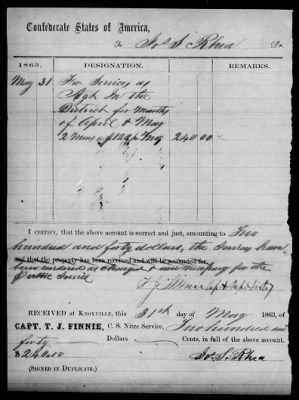 Confederate States of America,
To Jos S. Rhea Dr.
1863. DESIGNATION.
May 31 For Services as
Agt in the
District for Months
of April & May
2 mos @ $120 p Mo 240 00
I CERTIFY, that the above account is correct and just, amounting to Two
hundred and forty dollars, the services have
and that the property has been received and will be accounted for,
been rendered as charged & were necessary for the
Public Service
Capt &
RECEIVED at KNOXVILLE, this 31st day of May 1863, of
CAPT. T. J. FINNIE, C. S. Nitre Service, Two hundred and
forty Dollars Cents, in full of the above account.
$240.00 Jos. S. Rhea
(SIGNED IN DUPLICATE.)